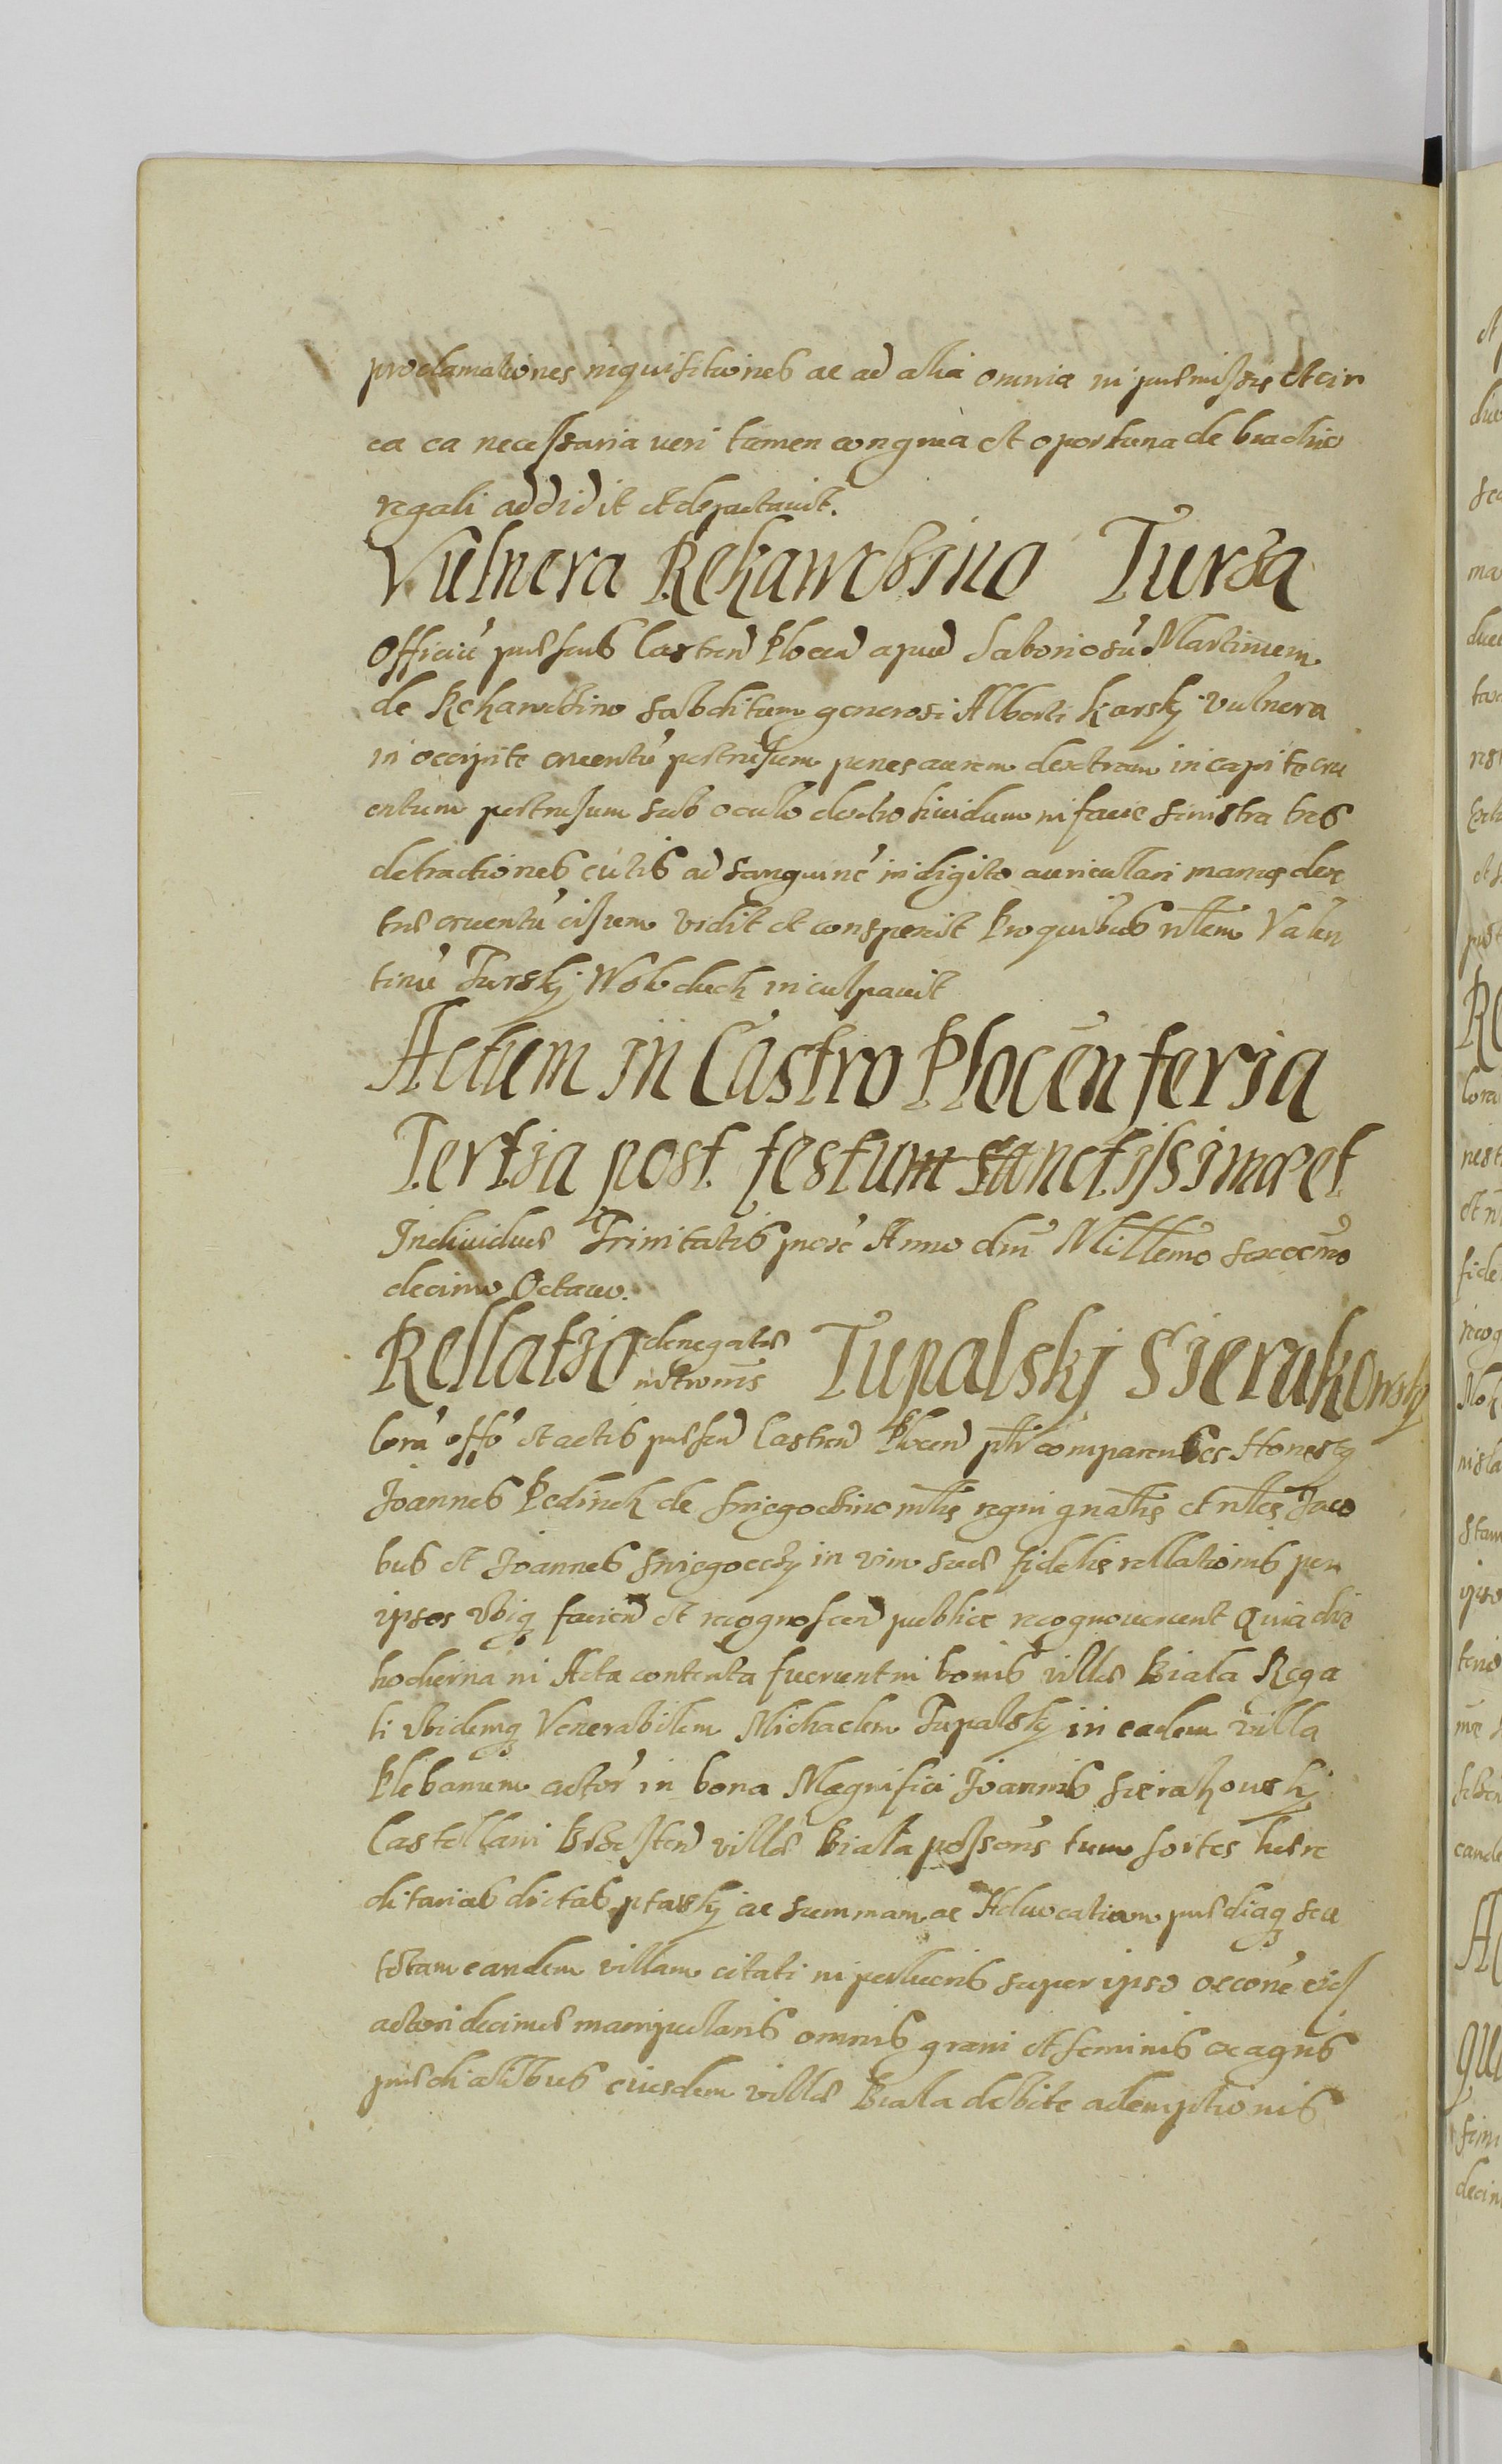 proclamationes inquisitiones ac ad alia omnia in præmissis et cir
ca ea necessaria veri tamen congrua et oportuna de brachio
regali addidit et deputauit.
Vulnera Rekawchino Turska
Officiu præsens Castren Plocen apud Laboriosu Martinum
de Rekawchino subditum generosi Alberti Karskj vulnera
in occipite cruentu pertrusum penes aurem dextram in capite cru
entum pertrusum sub oculo dextro liuidum in facie sinistra tres
detractiones cutis ad sanguine in digito auriculari manus dex
træ cruentu cisum vidit et conspexit Pro quibus nlem Valen
tinu Turskj Woloduch inculpauit
Actum in Castro Plocen feria
Tertia post festum sanctissimæ et
Indiuiduæ Trinitatis Anno dni Millemo sexcemo
decimo Octauo.
Rellatio denegatæ Tupalskj Sierakowskj
Cora offo et actis præsen Castren Plocen comparentes Honestus
Joannes Pedinek de Sniegochino mlis regni gnalis et nles Jaco
bus et Joannes Sniegoccky in vim suæ fidelis rellationis per
ipsos vbiq facien et recognoscen publice recognouerunt Quia die
hodierna in Acta contenta fuerunt in bonis villæ Biala Rega
li ibidemq Venerabilem Michaelem Tupalsky in eadem villa
Plebanum actor in bona Magnifici Joannis Sierakowskj
Castellani villæ Biala tum sortes hære
ditarias dictas ptasky ac summam ac Aduocatiam prædiaq seu
totam eandem villam citati in perlucris super ipso
actori decimæ manipularis omnis grani et seminis ex agris
prædialibus eiusdem villæ Biala debite ademptionis